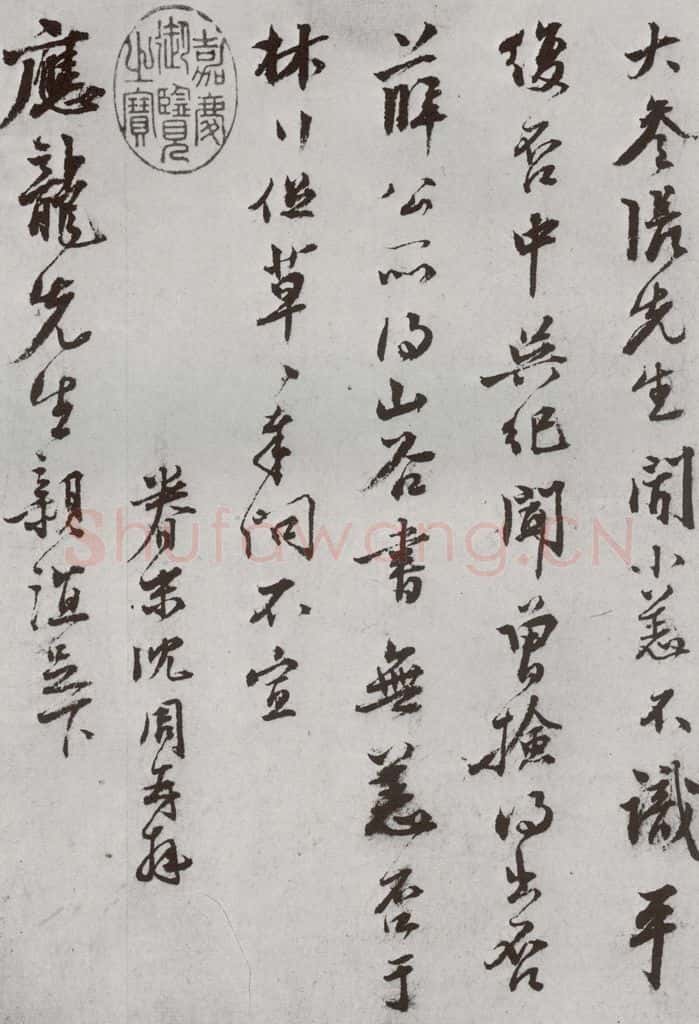 大參張先生聞小恙不識平
復否中吳紀聞曾撿得出否
薛公所得山谷書無恙否于
林行促草〻奉問不宣
眷末沈周再拜
應龍先生親誼足下
嘉慶御覽之寶
Shufawang.CN